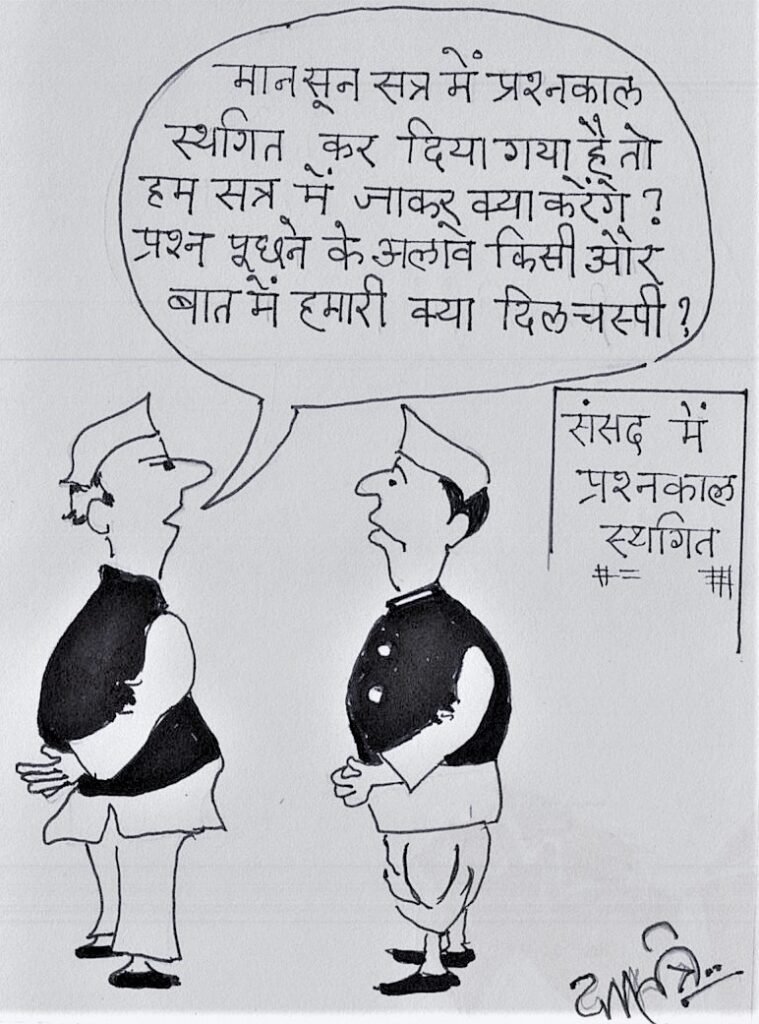 मानसून सत्र में प्रश्नकाल
स्थगित कर दिया गया है तो
हम सत्र में जाकर क्या करेंगे ?
प्रश्न पूछने के अलावे किसी और
बात में हमारी क्या दिलचस्पी ?
संसद में
प्रश्नकाल
स्थगित